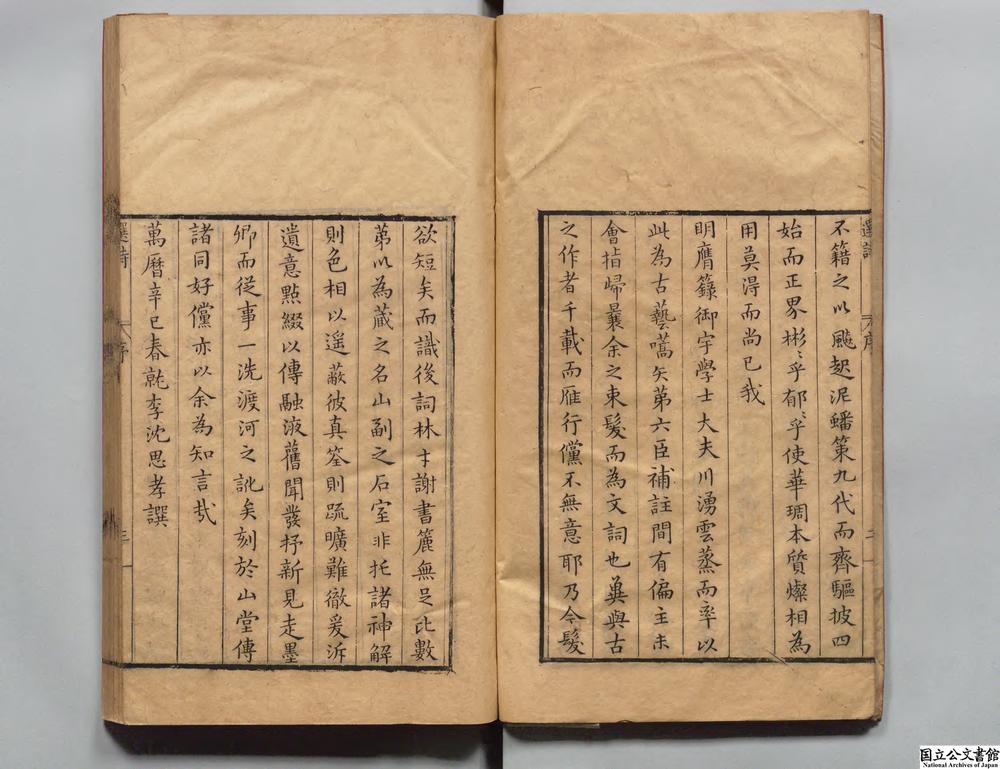 選詩 序 三
不籍之以飈起泥蟠策九代而齊驅披四
始而正界彬〻乎郁〻乎使華琱本質燦相為
用莫得而尚已我
明膺籙御宇學士大夫川湧雲蒸而率以
此為古藝嚆矢第六臣補註間有偏主未
會指歸曩余之束髮而為文詞也冀與古
之作者千載而雁行儻不無意耶乃今髮
欲短矣而識後詞林才謝書簏無足比數
第以為蔵之名山副之石室非托諸神解
則色相以遥蔽彼真筌則疏曠難徹爰泝
遺意點綴以傳融液舊聞發抒新見走墨
卿而従事一洗渡河之訛矣刻於山堂傳
諸同好儻亦以余為知言哉
萬曆辛巳春就李沈思孝譔
選詩 序 三
国立公文書館
National Archives of Japan